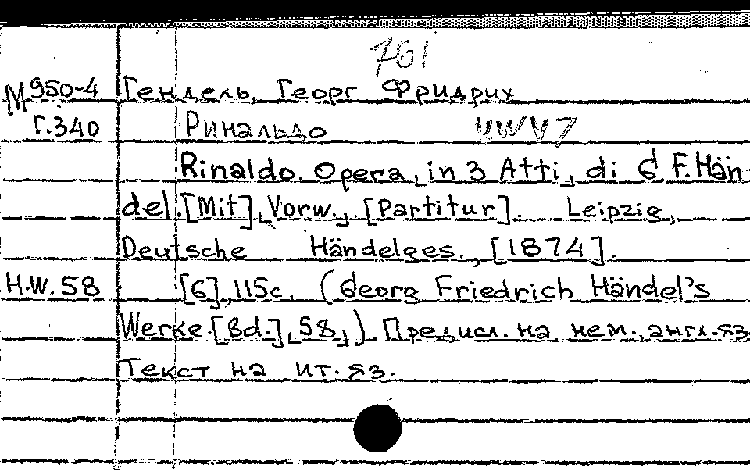 761
М950-4 Гендель, Георг Фридрих
Г.340 Ринальдо HWV7
Rinaldo. Opera in 3 Atti, di G F. Hän
del. [Mit] Vorw., [Partitur]. Leipzig,
Deutsche Händelges., [1874].
H.W.58 [6], 115с. (Georg Friedrich Händel's
Werke. [Bd.] 58,) Предисл. на нем., англ. яз
Текст на ит. яз.